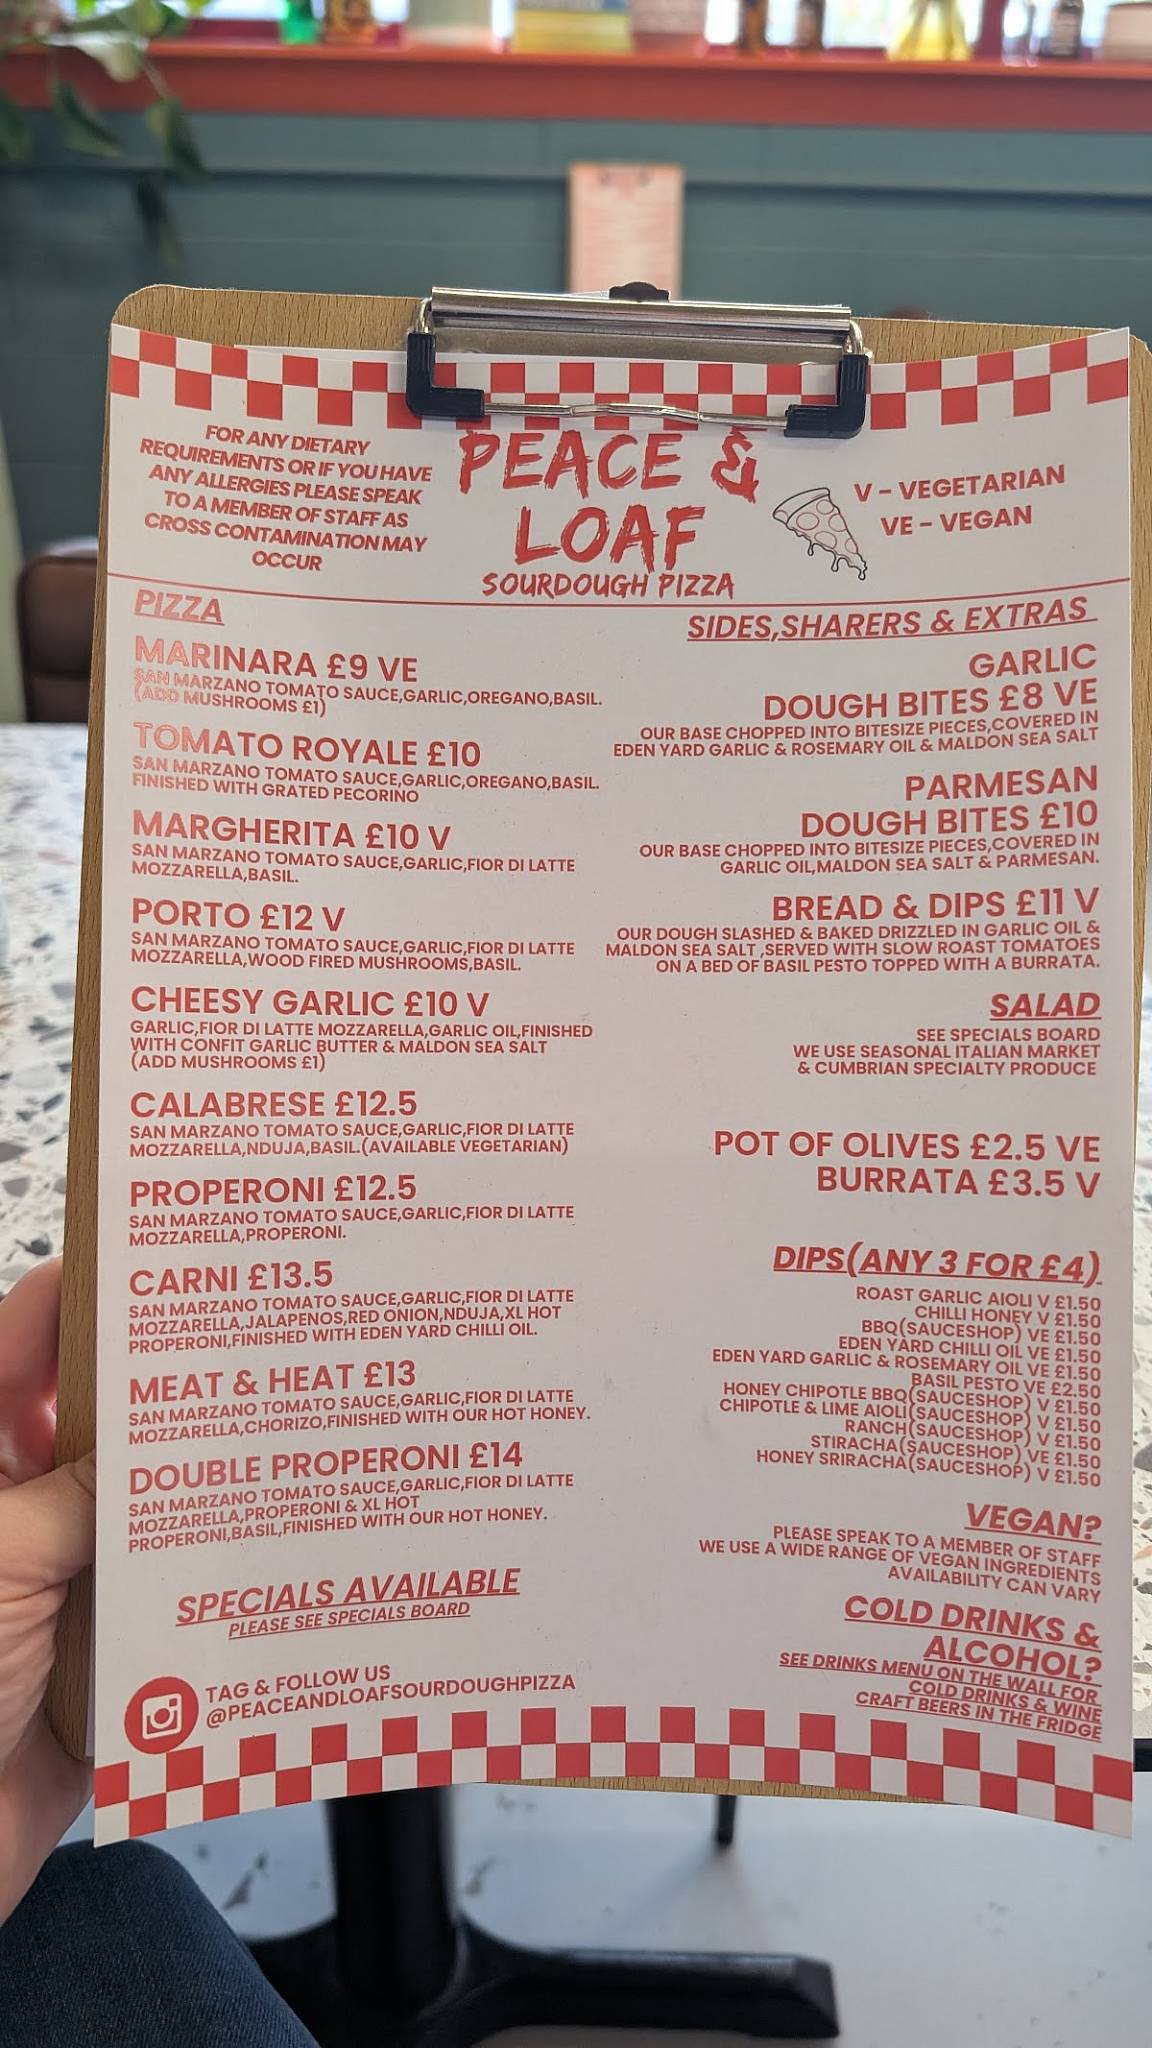 FOR ANY DIETARY
REQUIREMENTS OR IF YOU HAVE
ANY ALLERGIES PLEASE SPEAK
TO A MEMBER OF STAFF AS
CROSS CONTAMINATION MAY
OCCUR
PEACE &
LOAF
SOURDOUGH PIZZA
V - VEGETARIAN
VE - VEGAN
PIZZA
MARINARA £9 VE
SAN MARZANO TOMATO SAUCE,GARLIC,OREGANO,BASIL.
(ADD MUSHROOMS £1)
TOMATO ROYALE £10
SAN MARZANO TOMATO SAUCE,GARLIC,OREGANO,BASIL.
FINISHED WITH GRATED PECORINO
MARGHERITA £10 V
SAN MARZANO TOMATO SAUCE,GARLIC,FIOR DI LATTE
MOZZARELLA,BASIL.
PORTO £12 V
SAN MARZANO TOMATO SAUCE,GARLIC,FIOR DI LATTE
MOZZARELLA,WOOD FIRED MUSHROOMS,BASIL.
CHEESY GARLIC £10 V
GARLIC,FIOR DI LATTE MOZZARELLA,GARLIC OIL,FINISHED
WITH CONFIT GARLIC BUTTER & MALDON SEA SALT
(ADD MUSHROOMS £1)
CALABRESE £12.5
SAN MARZANO TOMATO SAUCE,GARLIC,FIOR DI LATTE
MOZZARELLA,NDUJA,BASIL.(AVAILABLE VEGETARIAN)
PROPERONI £12.5
SAN MARZANO TOMATO SAUCE,GARLIC,FIOR DI LATTE
MOZZARELLA,PROPERONI.
CARNI £13.5
SAN MARZANO TOMATO SAUCE,GARLIC,FIOR DI LATTE
MOZZARELLA,JALAPENOS,RED ONION,NDUJA,XL HOT
PROPERONI,FINISHED WITH EDEN YARD CHILLI OIL.
MEAT & HEAT £13
SAN MARZANO TOMATO SAUCE,GARLIC,FIOR DI LATTE
MOZZARELLA,CHORIZO,FINISHED WITH OUR HOT HONEY.
DOUBLE PROPERONI £14
SAN MARZANO TOMATO SAUCE,GARLIC,FIOR DI LATTE
MOZZARELLA,PROPERONI & XL HOT
PROPERONI,BASIL,FINISHED WITH OUR HOT HONEY.
SPECIALS AVAILABLE
PLEASE SEE SPECIALS BOARD
TAG & FOLLOW US
@PEACEANDLOAFSOURDOUGHPIZZA
SIDES,SHARERS & EXTRAS
GARLIC
DOUGH BITES £8 VE
OUR BASE CHOPPED INTO BITESIZE PIECES,COVERED IN
EDEN YARD GARLIC & ROSEMARY OIL & MALDON SEA SALT
PARMESAN
DOUGH BITES £10
OUR BASE CHOPPED INTO BITESIZE PIECES,COVERED IN
GARLIC OIL,MALDON SEA SALT & PARMESAN.
BREAD & DIPS £11 V
OUR DOUGH SLASHED & BAKED DRIZZLED IN GARLIC OIL &
MALDON SEA SALT ,SERVED WITH SLOW ROAST TOMATOES
ON A BED OF BASIL PESTO TOPPED WITH A BURRATA.
SALAD
SEE SPECIALS BOARD
WE USE SEASONAL ITALIAN MARKET
& CUMBRIAN SPECIALTY PRODUCE
POT OF OLIVES £2.5 VE
BURRATA £3.5 V
DIPS(ANY 3 FOR £4)
ROAST GARLIC AIOLI V £1.50
CHILLI HONEY V £1.50
BBQ(SAUCESHOP) VE £1.50
EDEN YARD CHILLI OIL VE £1.50
EDEN YARD GARLIC & ROSEMARY OIL VE £1.50
BASIL PESTO VE £2.50
HONEY CHIPOTLE BBQ(SAUCESHOP) V £1.50
CHIPOTLE & LIME AIOLI(SAUCESHOP) V £1.50
RANCH(SAUCESHOP) V £1.50
STIRACHA(SAUCESHOP) VE £1.50
HONEY SRIRACHA(SAUCESHOP) V £1.50
VEGAN?
PLEASE SPEAK TO A MEMBER OF STAFF
WE USE A WIDE RANGE OF VEGAN INGREDIENTS
AVAILABILITY CAN VARY
COLD DRINKS &
ALCOHOL?
SEE DRINKS MENU ON THE WALL FOR
COLD DRINKS & WINE
CRAFT BEERS IN THE FRIDGE